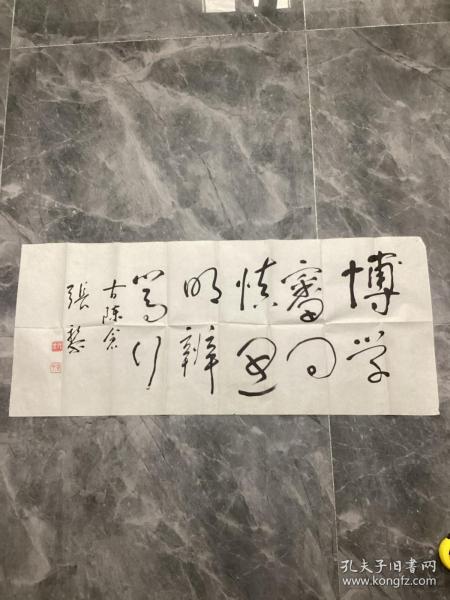 博学
审问
慎思
明辨
笃行
古陈仓
張
孔夫子旧书网
www.kongfz.com